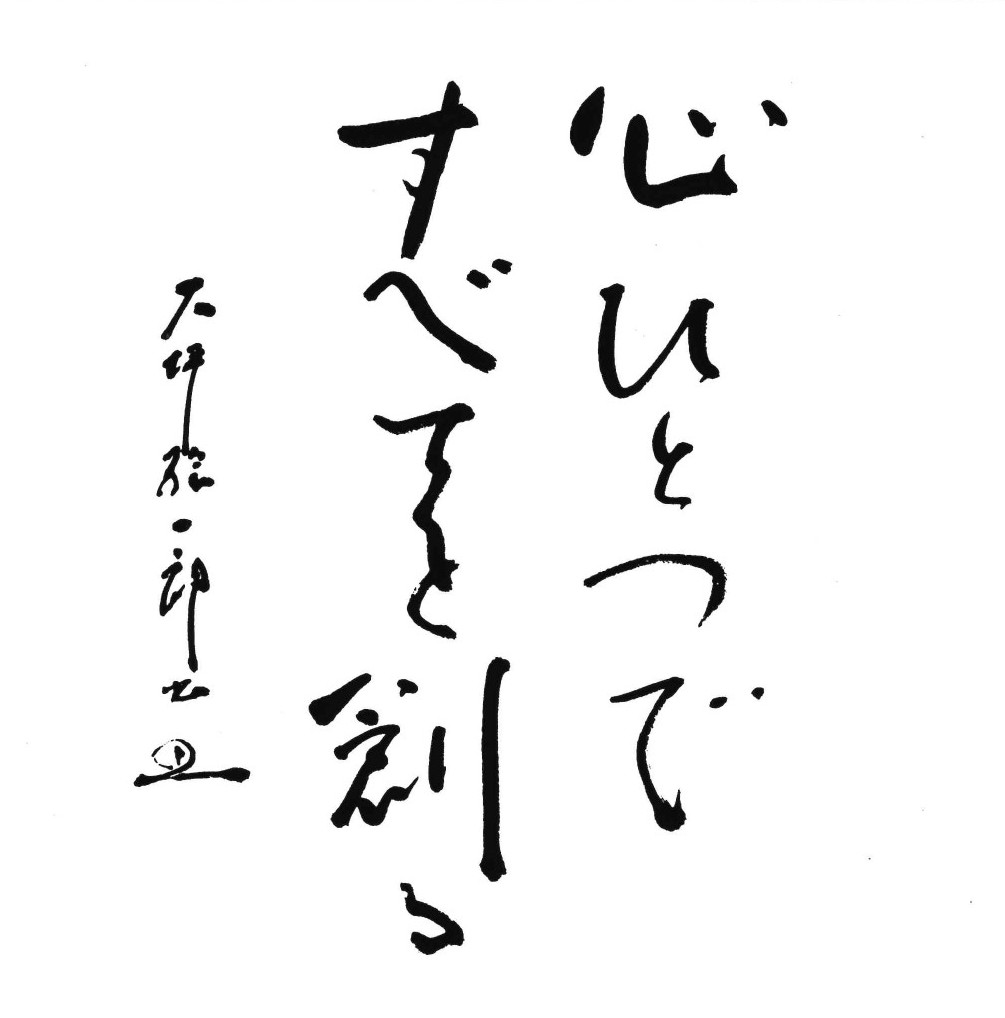 心ひとつで
すべてを創る
大坪 一郎